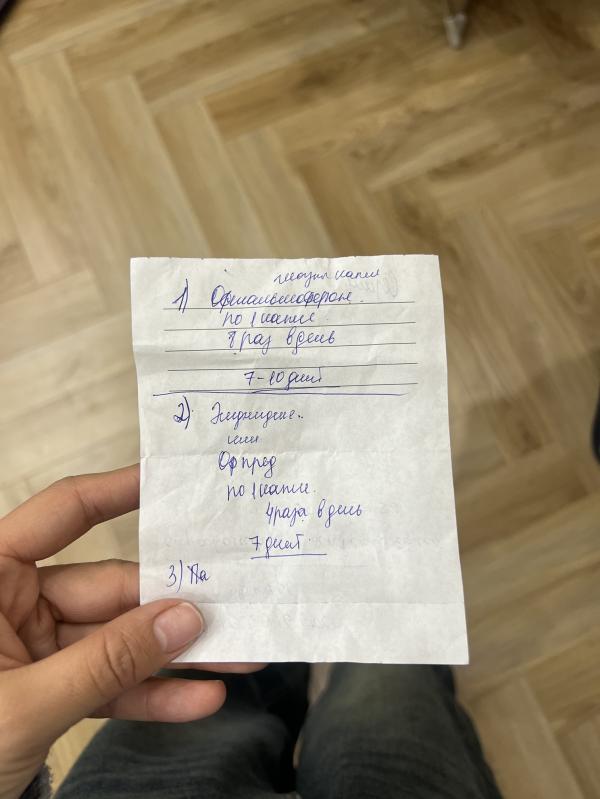 глазн капли
1) Офтальмоферон.
по 1 капле.
8 раз в день
7-10 дней
2)
или
Офпред
по 1 капле.
4 раза в день
7 дней.
3)